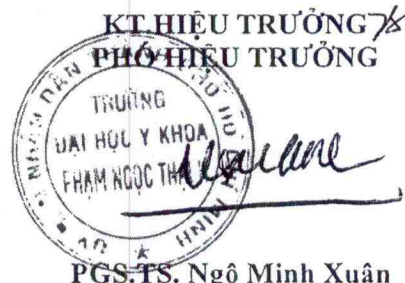 KT.HIỆU TRƯỞNG
PHÓ HIỆU TRƯỞNG
TRƯỜNG
ĐẠI HỌC Y KHOA
PHẠM NGỌC
PGS.TS. Ngô Minh Xuân